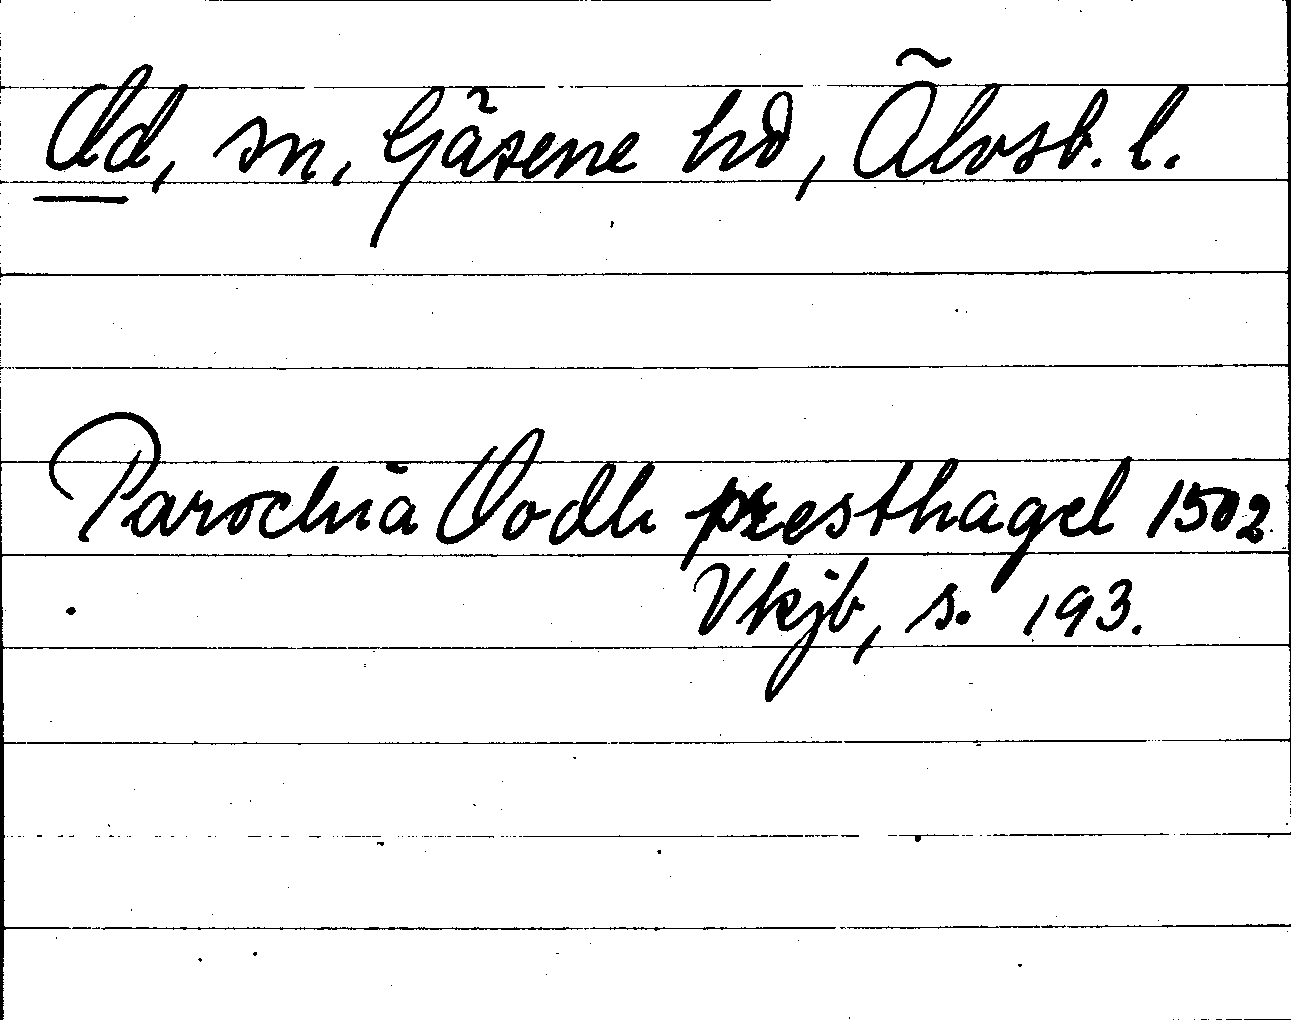 Od, sn, Gäsene hd, Älvsb. l.
Parochia Oodh presthagel 1502
Vkjb, s. 193.